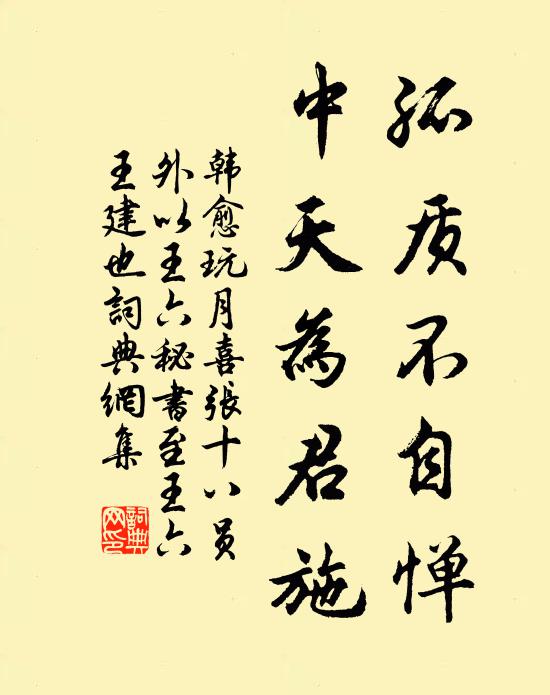 孤质不自惮
中天為君施
韩愈玩月喜張十八员
外以王六秘書至王六
王建也詞典網集
詞典
网印